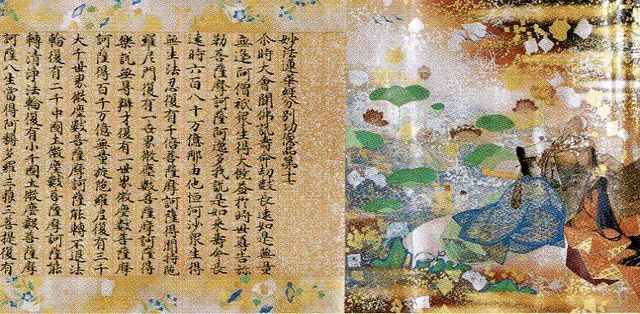 妙法蓮華經分別功德品第十七
尒時大會聞佛說壽命劫數長遠如是無量
無邊阿僧祇衆生得大饒益於時世尊告弥
勒菩薩摩訶薩阿逸多我說是如來壽命長
遠時六百八十万億那由他恒河沙衆生得
無生法忍復有千倍菩薩摩訶薩得聞持陁
羅尼門復有一世界微塵數菩薩摩訶薩得
樂說無㝵辯才復有一世界微塵數菩薩摩
訶薩得百千万億無量旋陁羅尼復有三千
大千世界微塵數菩薩摩訶薩能轉不退法
輪復有二千中國土微塵數菩薩摩訶薩能
轉清淨法輪復有小千國土微塵數菩薩摩
訶薩八生當得阿耨多羅三藐三菩提復有